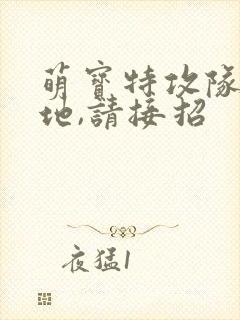 萌寶特攻隊
地,請接招
夜猛1